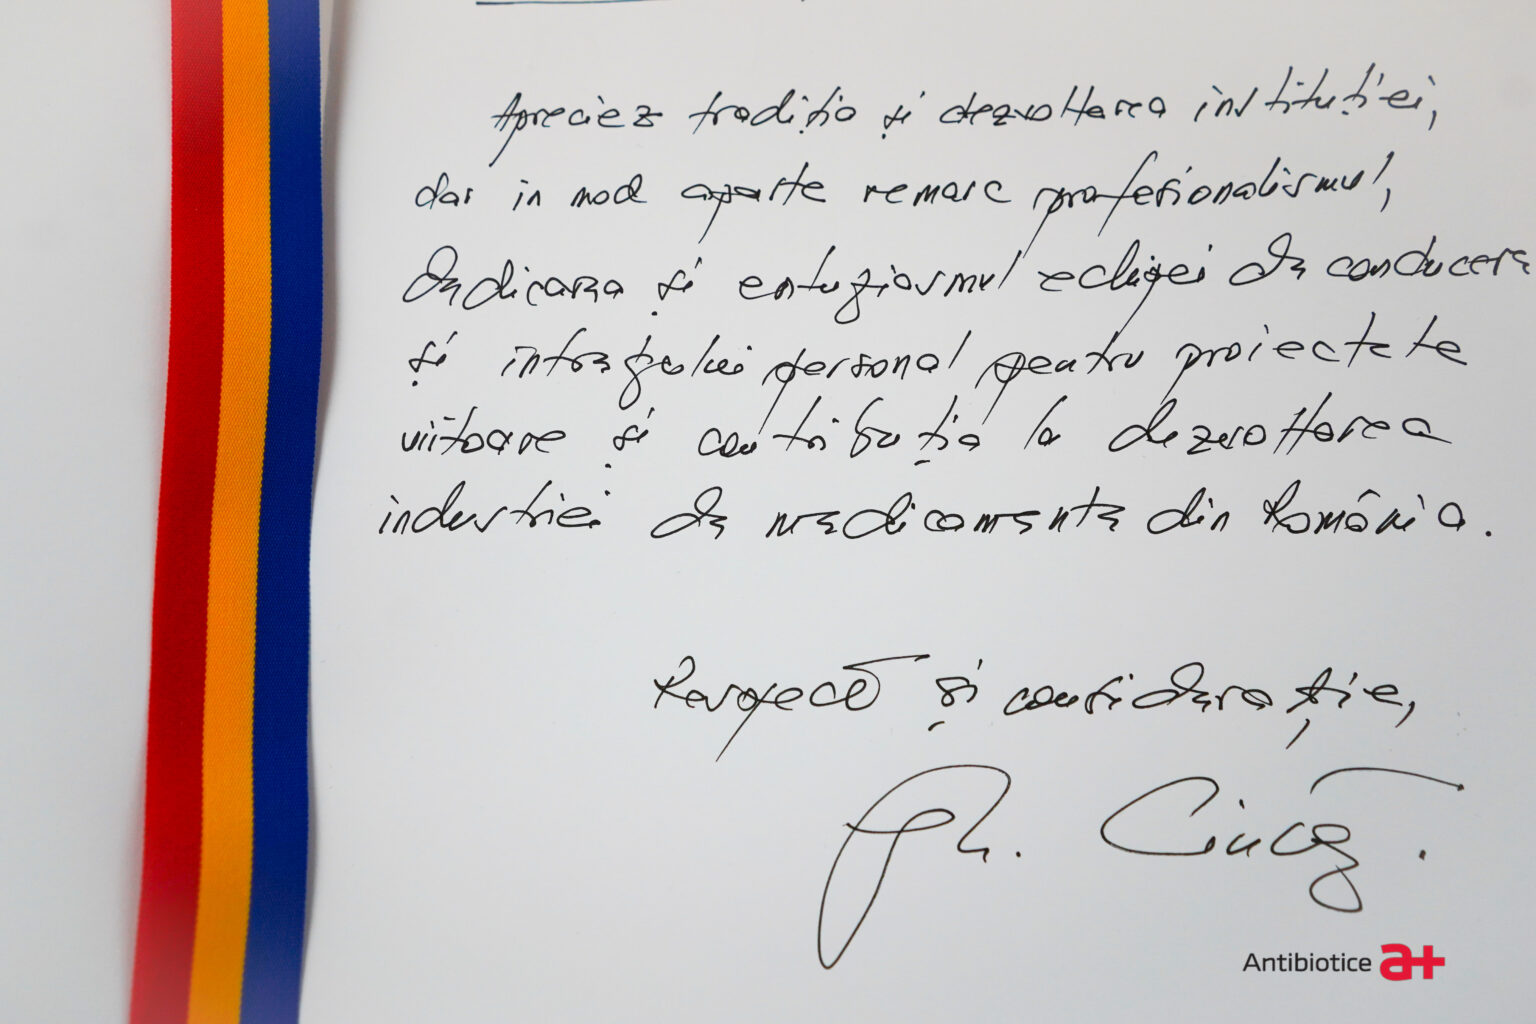 Apreciez tradiția și dezvoltarea instituției,
dar in mod aparte remarc profesionalismul,
dedicarea și entuziasmul echipei de conducere
și întregului personal pentru proiectele
viitoare și contribuția la dezvoltarea
industriei de medicamente din România.
Respect și considerație,
Gh. Ciucă.
Antibiotice a+